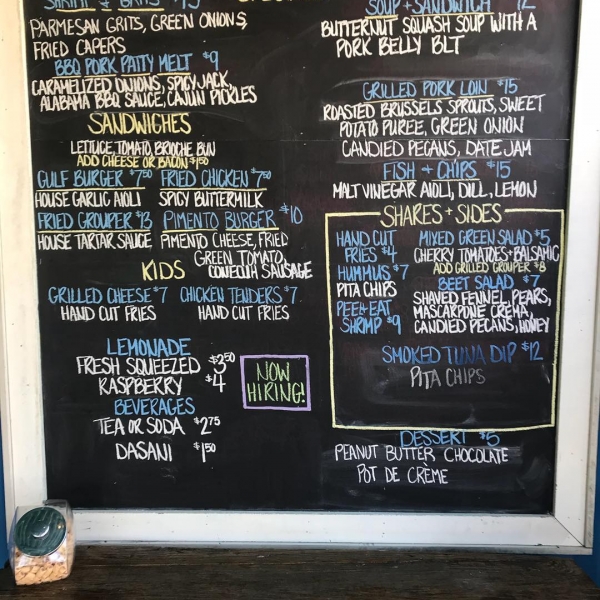 SHRIMP & GRITS
PARMESAN GRITS, GREEN ONIONS,
FRIED CAPERS
BBQ PORK PATTY MELT $9
CARAMELIZED ONIONS, SPICY JACK,
ALABAMA BBQ SAUCE, CAJUN PICKLES
SANDWICHES
LETTUCE, TOMATO, BRIOCHE BUN
ADD CHEESE OR BACON $1.50
GULF BURGER $7.50
HOUSE GARLIC AIOLI
FRIED CHICKEN $7.50
SPICY BUTTERMILK
FRIED GROUPER $13
HOUSE TARTAR SAUCE
PIMENTO BURGER $10
PIMENTO CHEESE, FRIED
GREEN TOMATO,
CONECUH SAUSAGE
KIDS
GRILLED CHEESE $7
HAND CUT FRIES
CHICKEN TENDERS $7
HAND CUT FRIES
LEMONADE
FRESH SQUEEZED $3.50
RASPBERRY $4
BEVERAGES
TEA OR SODA $2.75
DASANI $1.50
NOW
HIRING!
SOUP + SANDWICH $12
BUTTERNUT SQUASH SOUP WITH A
PORK BELLY BLT
GRILLED PORK LOIN $15
ROASTED BRUSSELS SPROUTS, SWEET
POTATO PUREE, GREEN ONION
CANDIED PECANS, DATE JAM
FISH + CHIPS $15
MALT VINEGAR AIOLI, DILL, LEMON
SHARES + SIDES
HAND CUT
FRIES $4
HUMMUS $7
PITA CHIPS
PEEL + EAT
SHRIMP $9
MIXED GREEN SALAD $5
CHERRY TOMATOES + BALSAMIC
ADD GRILLED GROUPER $8
BEET SALAD $7
SHAVED FENNEL, PEARS,
MASCARPONE CREMA,
CANDIED PECANS, HONEY
SMOKED TUNA DIP $12
PITA CHIPS
DESSERT $5
PEANUT BUTTER CHOCOLATE
POT DE CRÈME